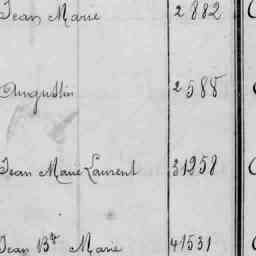 Jean Marie 2882
Augustin 2588
Jean Marie Laurent 31258
Jean Bte Marie 41531